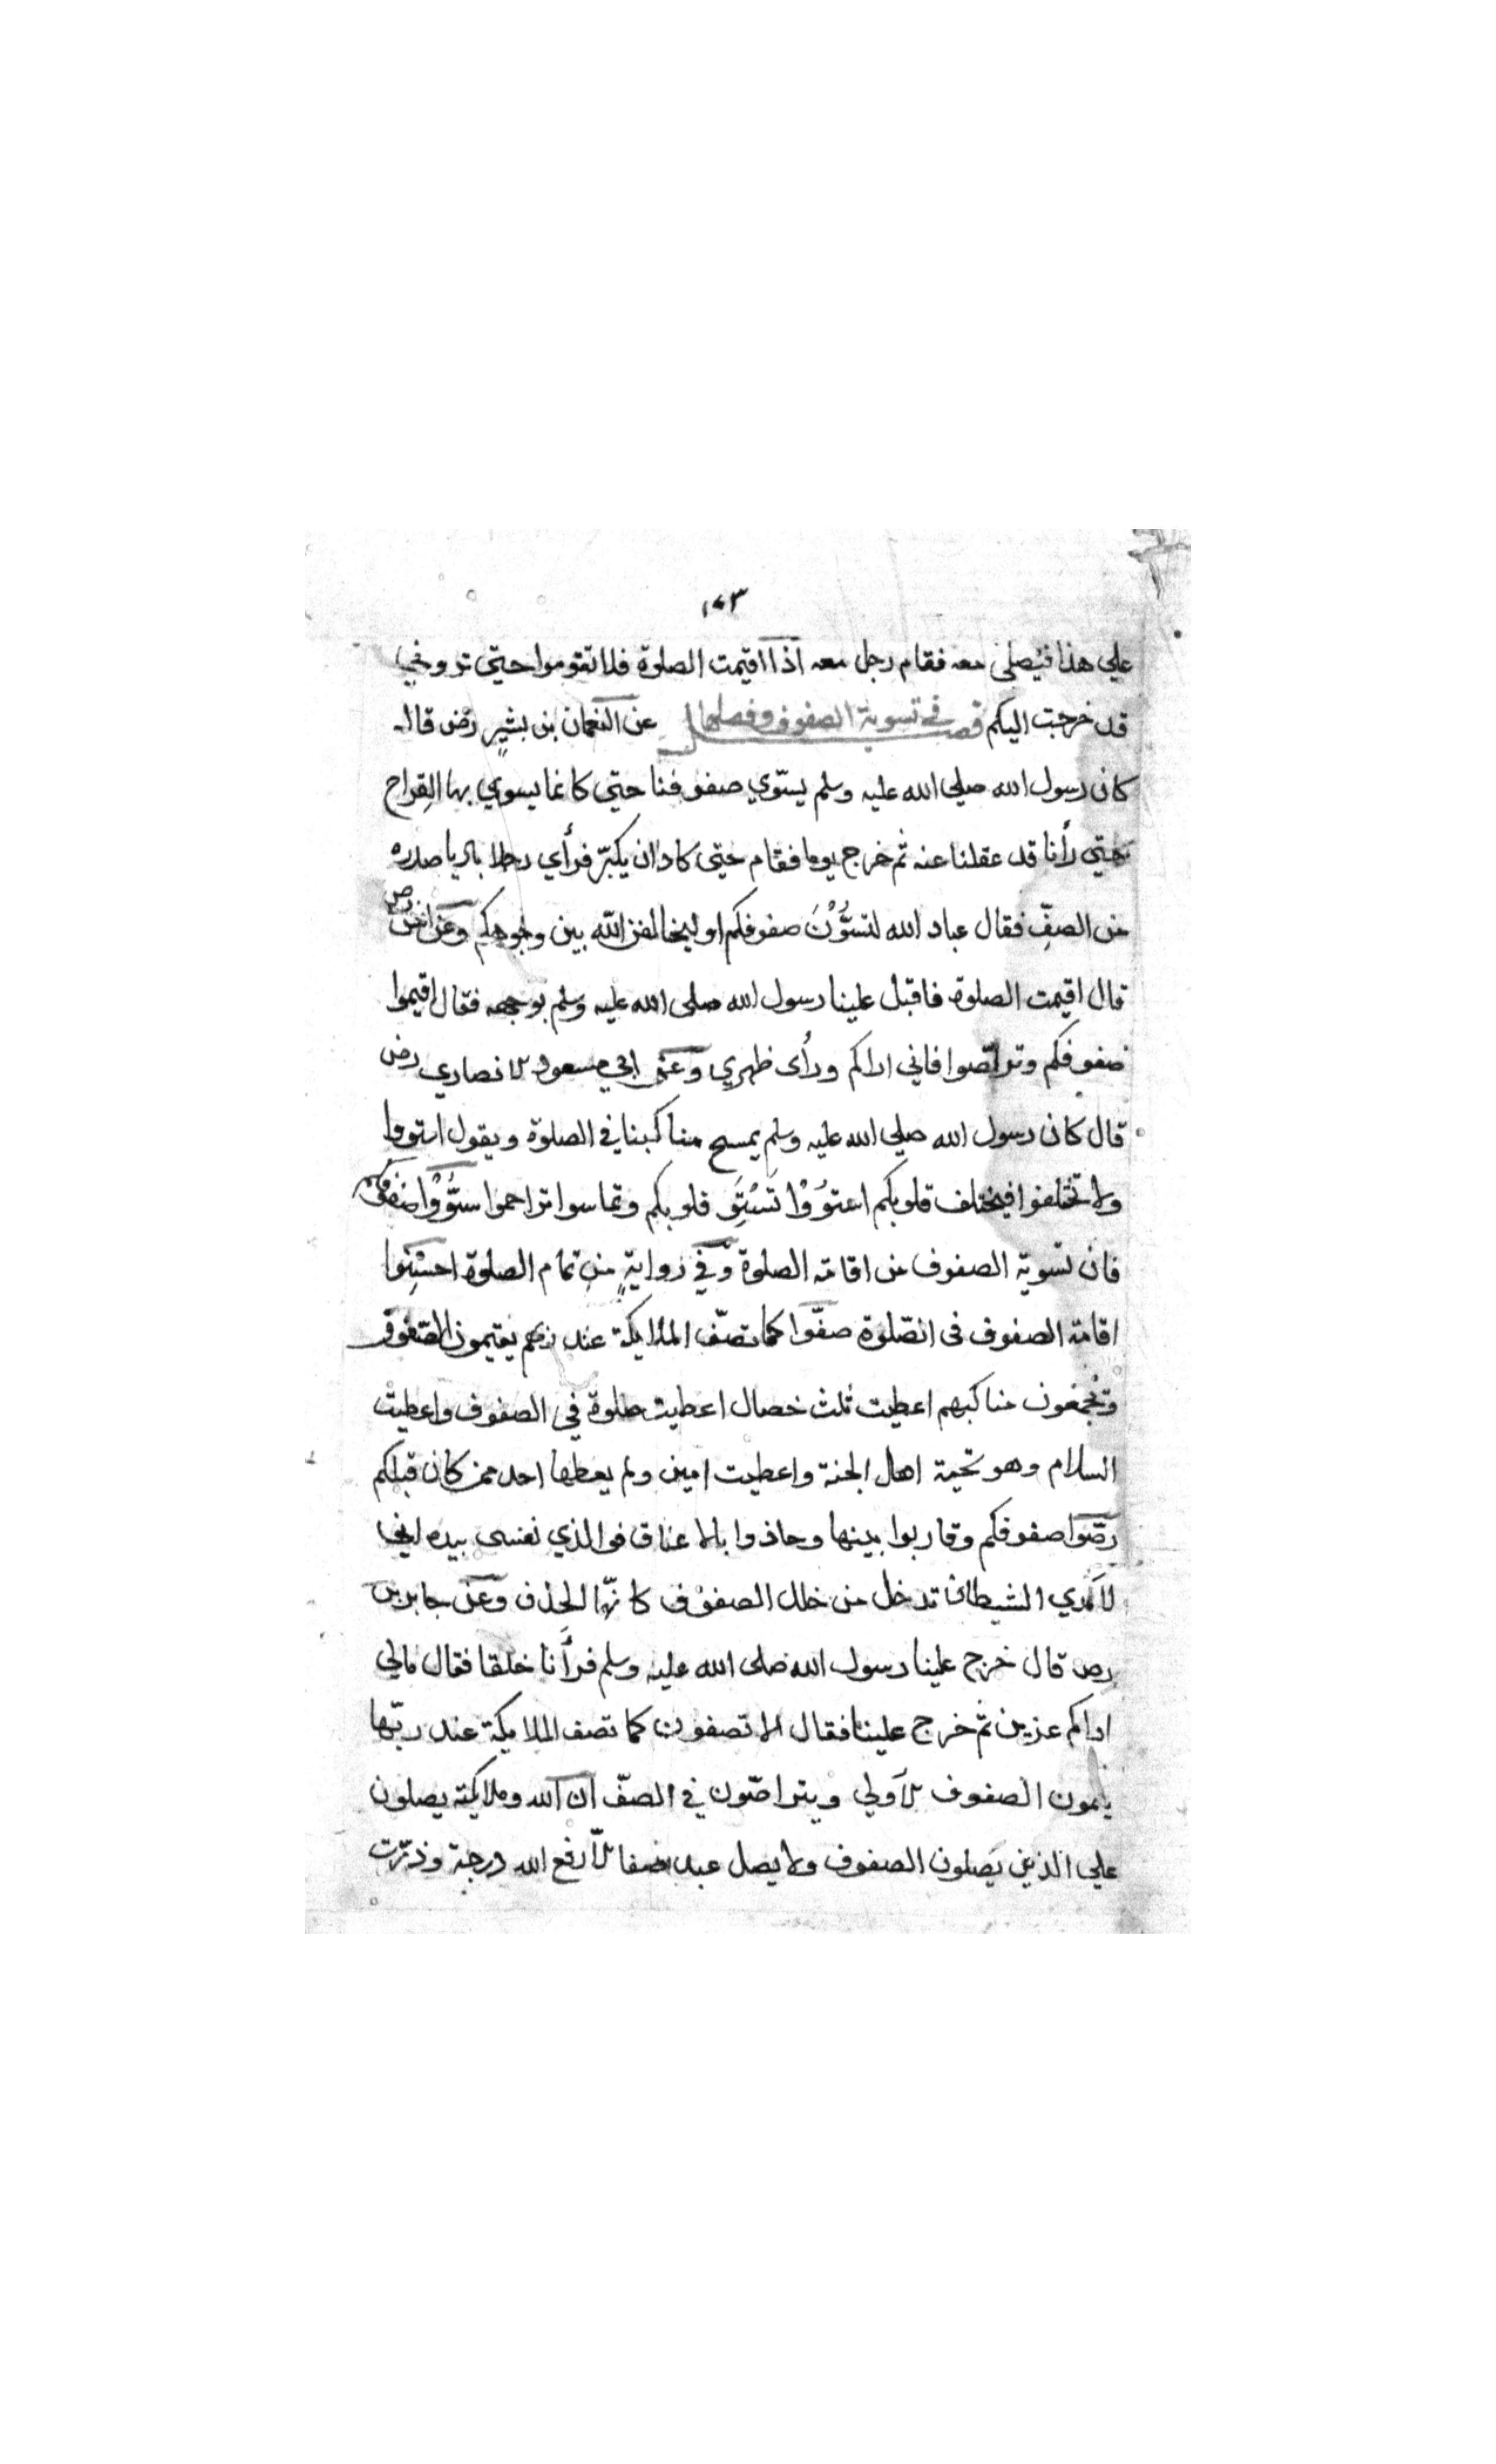 ١٤٣
علي هذا فيصلي معه فقام رجل معه اذا اقيمت الصلوة فلا تقوموا حتي تروني
قد خرجت اليكم فصل في تسوية الصفوف وفضلها عن النعمان بن بشيرٍ رض قال
كان رسول الله صلي الله عليه وسلم يسّوي صفوفنا حتي كانما يسوي بها القِراح
حتي رأنا قد عقلنا عنه ثم خرج يوما فقام حتي كاد ان يكبّر فرأي رجلا باديا صدره
من الصفِّ فقال عباد الله لتسوُّنَ صفوفكم او ليخالفن الله بين وجوهكم وعن انس رض
قال اقيمت الصلوة فاقبل علينا رسول الله صلى الله عليه وسلم بوجهه فقال اقيموا
صفوفكم وتراصّوا فاني اراكم ورأى ظهري وعن ابي مسعود الانصاري رض
قال كان رسول الله صلي الله عليه وسلم يمسح مناكبنا في الصلوة ويقول استووا
ولا تختلفوا فيختلف قلوبكم استوُوْا تَسْتَوِ قلوبكم وتماسوا تراحموا سَوُّوْا صفوفكم
فان تسوية الصفوف من اقامة الصلوة وفي روايةٍ من تمام الصلوة احسِنوا
اقامة الصفوف فى الصّلوة صفّوا كما تصفّ الملايكة عند ربهم يقيمون الصفوف
وتجمعون مناكبهم اعطيت ثلث خصال اعطيت صلوة في الصفوف واعطيت
السلام وهو تحية اهل الجنة واعطيت امين ولم يعطها احد ممن كان قبلكم
رصّوا صفوفكم وقاربوا بينها وحاذوا بالاعناق فوالذي نفسى بيده اني
لأري الشيطان تدخل من خلل الصفوف كانّها الحذف وعن جابر بن
رض قال خرج علينا رسول الله صلى الله عليه وسلم فرأنا حلقا فقال مالي
اراكم عزين ثم خرج علينا فقال الا تصفون كما تصف الملايكة عند ربّها
يتمون الصفوف الأولي ويتراصّون في الصفّ ان الله وملايكته يصلون
علي الذين يَصِلون الصفوف ولا يصل عبد صفا الّا رفع الله درجة وذرّت